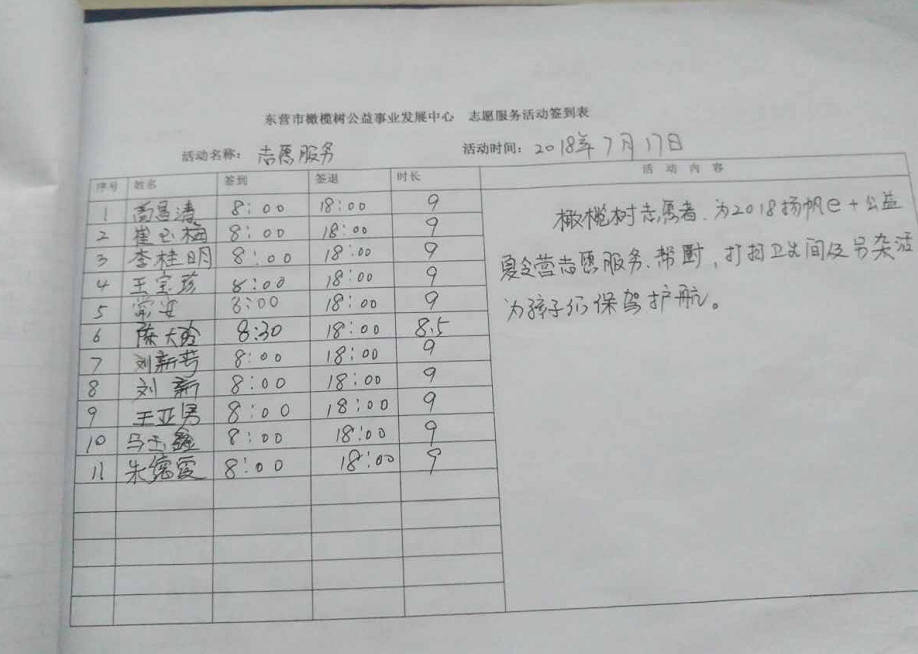 东营市橄榄树公益事业发展中心 志愿服务活动签到表
活动名称：志愿服务 活动时间：2018年7月17日
序号 姓名 签到 签退 时长 活动内容
1 高昌涛 8:00 18:00 9
2 崔玉梅 8:00 18:00 9
3 李桂明 8:00 18:00 9
4 王宝珍 8:00 18:00 9
5 常安 8:00 18:00 9
6 陈大玲 8:30 18:00 8.5
7 刘新 8:00 18:00 9
8 刘新 8:00 18:00 9
9 王亚男 8:00 18:00 9
10 马玉鑫 8:00 18:00 9
11 朱德霞 8:00 18:00 9
橄榄树志愿者、为2018扬帆e+公益
夏令营志愿服务、帮厨，打扫卫生间及另杂活
为孩子们保驾护航。